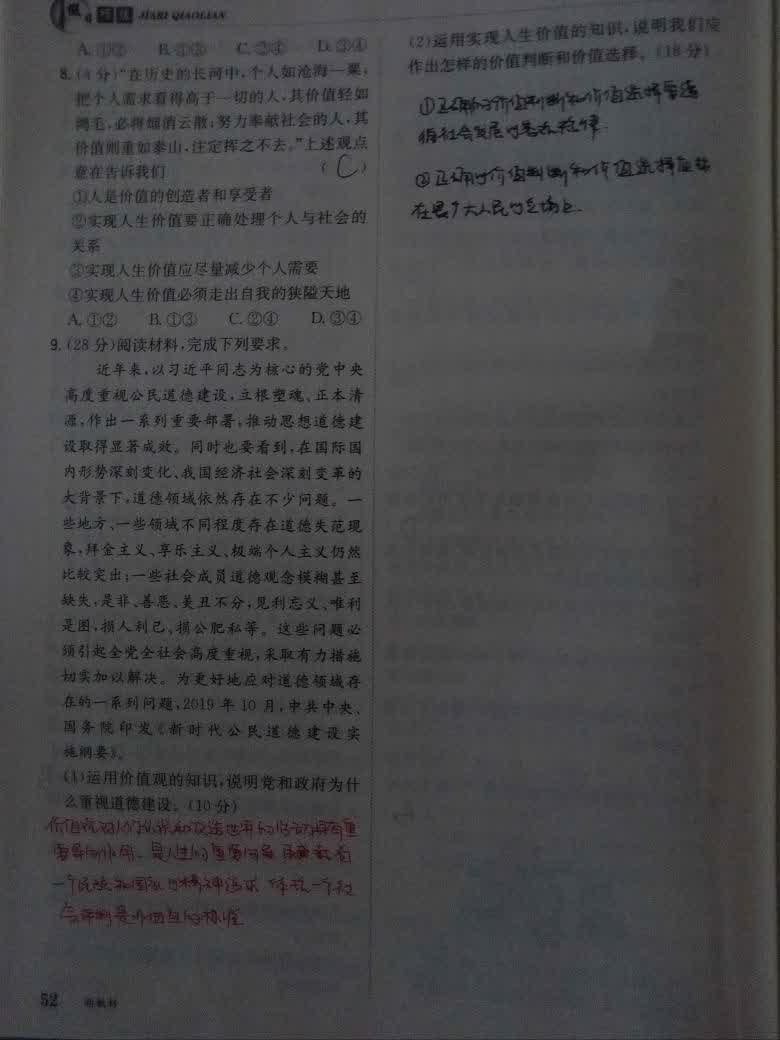 假日 巧练 JIARI QIAOLIAN
A.①② B.①③ C.②④ D.③④
8.(4分)“在历史的长河中,个人如沧海一粟,
把个人需求看得高于一切的人,其价值轻如
鸿毛,必将烟消云散;努力奉献社会的人,其
价值则重如泰山,注定挥之不去。”上述观点
意在告诉我们 ( C )
①人是价值的创造者和享受者
②实现人生价值要正确处理个人与社会的
关系
③实现人生价值应尽量减少个人需要
④实现人生价值必须走出自我的狭隘天地
A.①② B.①③ C.②④ D.③④
9.(28分)阅读材料,完成下列要求。
近年来,以习近平同志为核心的党中央
高度重视公民道德建设,立根塑魂、正本清
源,作出一系列重要部署,推动思想道德建
设取得显著成效。同时也要看到,在国际国
内形势深刻变化、我国经济社会深刻变革的
大背景下,道德领域依然存在不少问题。一
些地方、一些领域不同程度存在道德失范现
象,拜金主义、享乐主义、极端个人主义仍然
比较突出;一些社会成员道德观念模糊甚至
缺失,是非、善恶、美丑不分,见利忘义、唯利
是图,损人利己、损公肥私等。这些问题必
须引起全党全社会高度重视,采取有力措施
切实加以解决。为更好地应对道德领域存
在的一系列问题,2019年10月,中共中央、
国务院印发《新时代公民道德建设实
施纲要》。
(1)运用价值观的知识,说明党和政府为什
么重视道德建设。(10分)
价值观对人们认识和改造世界的活动具有重
要导向作用、是人生的重要向导
一个民族和国家的精神追求 体现一个社
会评判是非曲直的标准
52 新教材
(2)运用实现人生价值的知识,说明我们应
作出怎样的价值判断和价值选择。(18分)
①正确的价值判断和价值选择要遵
循社会发展的客观规律
②正确的价值判断和价值选择应站
在最广大人民的立场上